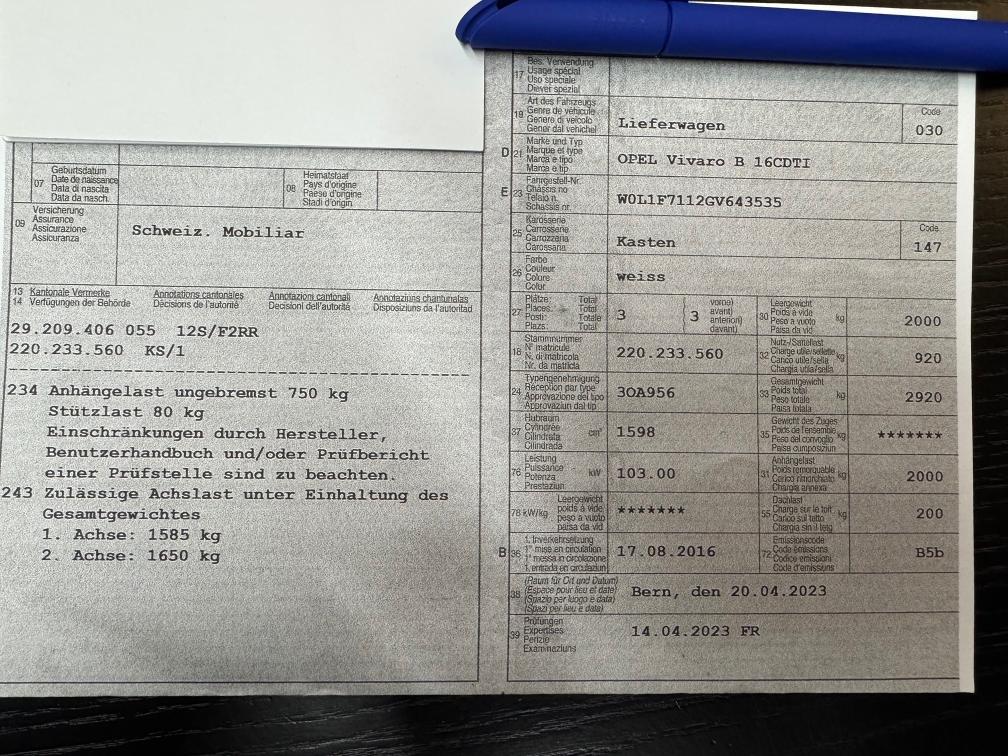 07
Geburtsdatum
Date de naissance
Data di nascita
Data da nasch.
08
Heimatstaat
Pays d'origine
Paese d'origine
Stadi d'origin
09
Versicherung
Assurance
Assicurazione
Assicuranza
Schweiz. Mobiliar
13 Kantonale Vermerke Annotations cantonales Annotazioni cantonali Annotaziuns chantunalas
14 Verfügungen der Behörde Décisions de l'autorité Decisioni dell'autorità Disposiziuns da l'autoritad
29.209.406 055 12S/F2RR
220.233.560 KS/1
234 Anhängelast ungebremst 750 kg
Stützlast 80 kg
Einschränkungen durch Hersteller,
Benutzerhandbuch und/oder Prüfbericht
einer Prüfstelle sind zu beachten.
243 Zulässige Achslast unter Einhaltung des
Gesamtgewichtes
1. Achse: 1585 kg
2. Achse: 1650 kg
17
Bes. Verwendung
Usage spécial
Uso speciale
Diever spezial
19
Art des Fahrzeugs
Genre de véhicule
Genere di veicolo
Gener dal vehichel
Lieferwagen
Code
030
D 21
Marke und Typ
Marque et type
Marca e tipo
Marca e tip
OPEL Vivaro B 16CDTI
E 23
Fahrgestell-Nr.
Châssis no
Telaio n.
Schassis nr.
W0L1F7112GV643535
25
Karosserie
Carrosserie
Carrozzeria
Carossaria
Kasten
Code
147
26
Farbe
Couleur
Colore
Colur
weiss
27
Plätze: Total
Places: Total
Posti: Totale
Plazs: Total
3
(3
vorne)
avant)
anteriori)
davant)
30
Leergewicht
Poids à vide
Peso a vuoto
Paisa da vid
kg
2000
18
Stammnummer
N° matricule
N. di matricola
Nr. da matricla
220.233.560
32
Nutz-/Sattellast
Charge utile/sellette
Carico utile/sella
Chargia utila/sella
kg
920
24
Typengenehmigung
Réception par type
Approvazione del tipo
Approvaziun dal tip
3OA956
33
Gesamtgewicht
Poids total
Peso totale
Paisa totala
kg
2920
37
Hubraum
Cylindrée
Cilindrata
Cilindrada
cm³
1598
35
Gewicht des Zuges
Poids de l'ensemble
Peso del convoglio
Paisa cumposiziun
kg
*******
76
Leistung
Puissance
Potenza
Prestaziun
kW
103.00
31
Anhängelast
Poids remorquable
Carico rimorchiato
Chargia annexa
kg
2000
78 kW/kg
Leergewicht
poids à vide
peso a vuoto
paisa da vid
*******
55
Dachlast
Charge sur le toit
Carico sul tetto
Chargia sin il tetg
kg
200
B 36
1. Inverkehrsetzung
1re mise en circulation
1a messa in circolazione
1. entrada en circulaziun
17.08.2016
72
Emissionscode
Code émissions
Codice emissioni
Code d'emissiuns
B5b
38
(Raum für Ort und Datum)
(Espace pour lieu et date)
(Spazio per luogo e data)
(Spazi per lieu e data)
Bern, den 20.04.2023
39
Prüfungen
Expertises
Perizie
Examinaziuns
14.04.2023 FR